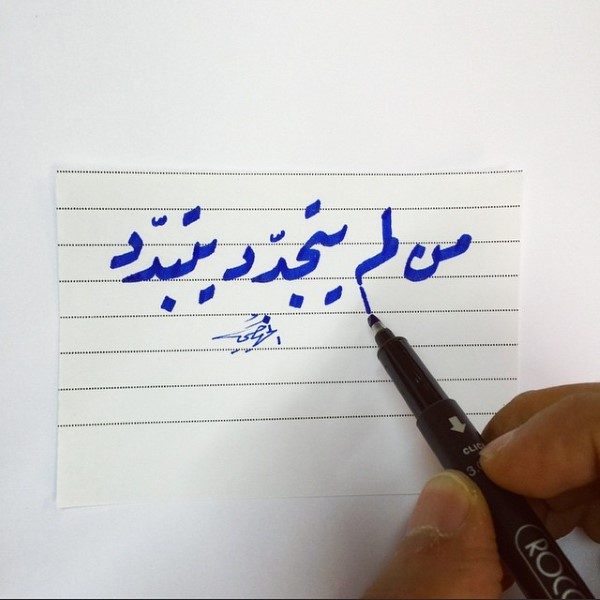 من لم يتجدّد يتبدّد
CLIC
3.0
ROCO